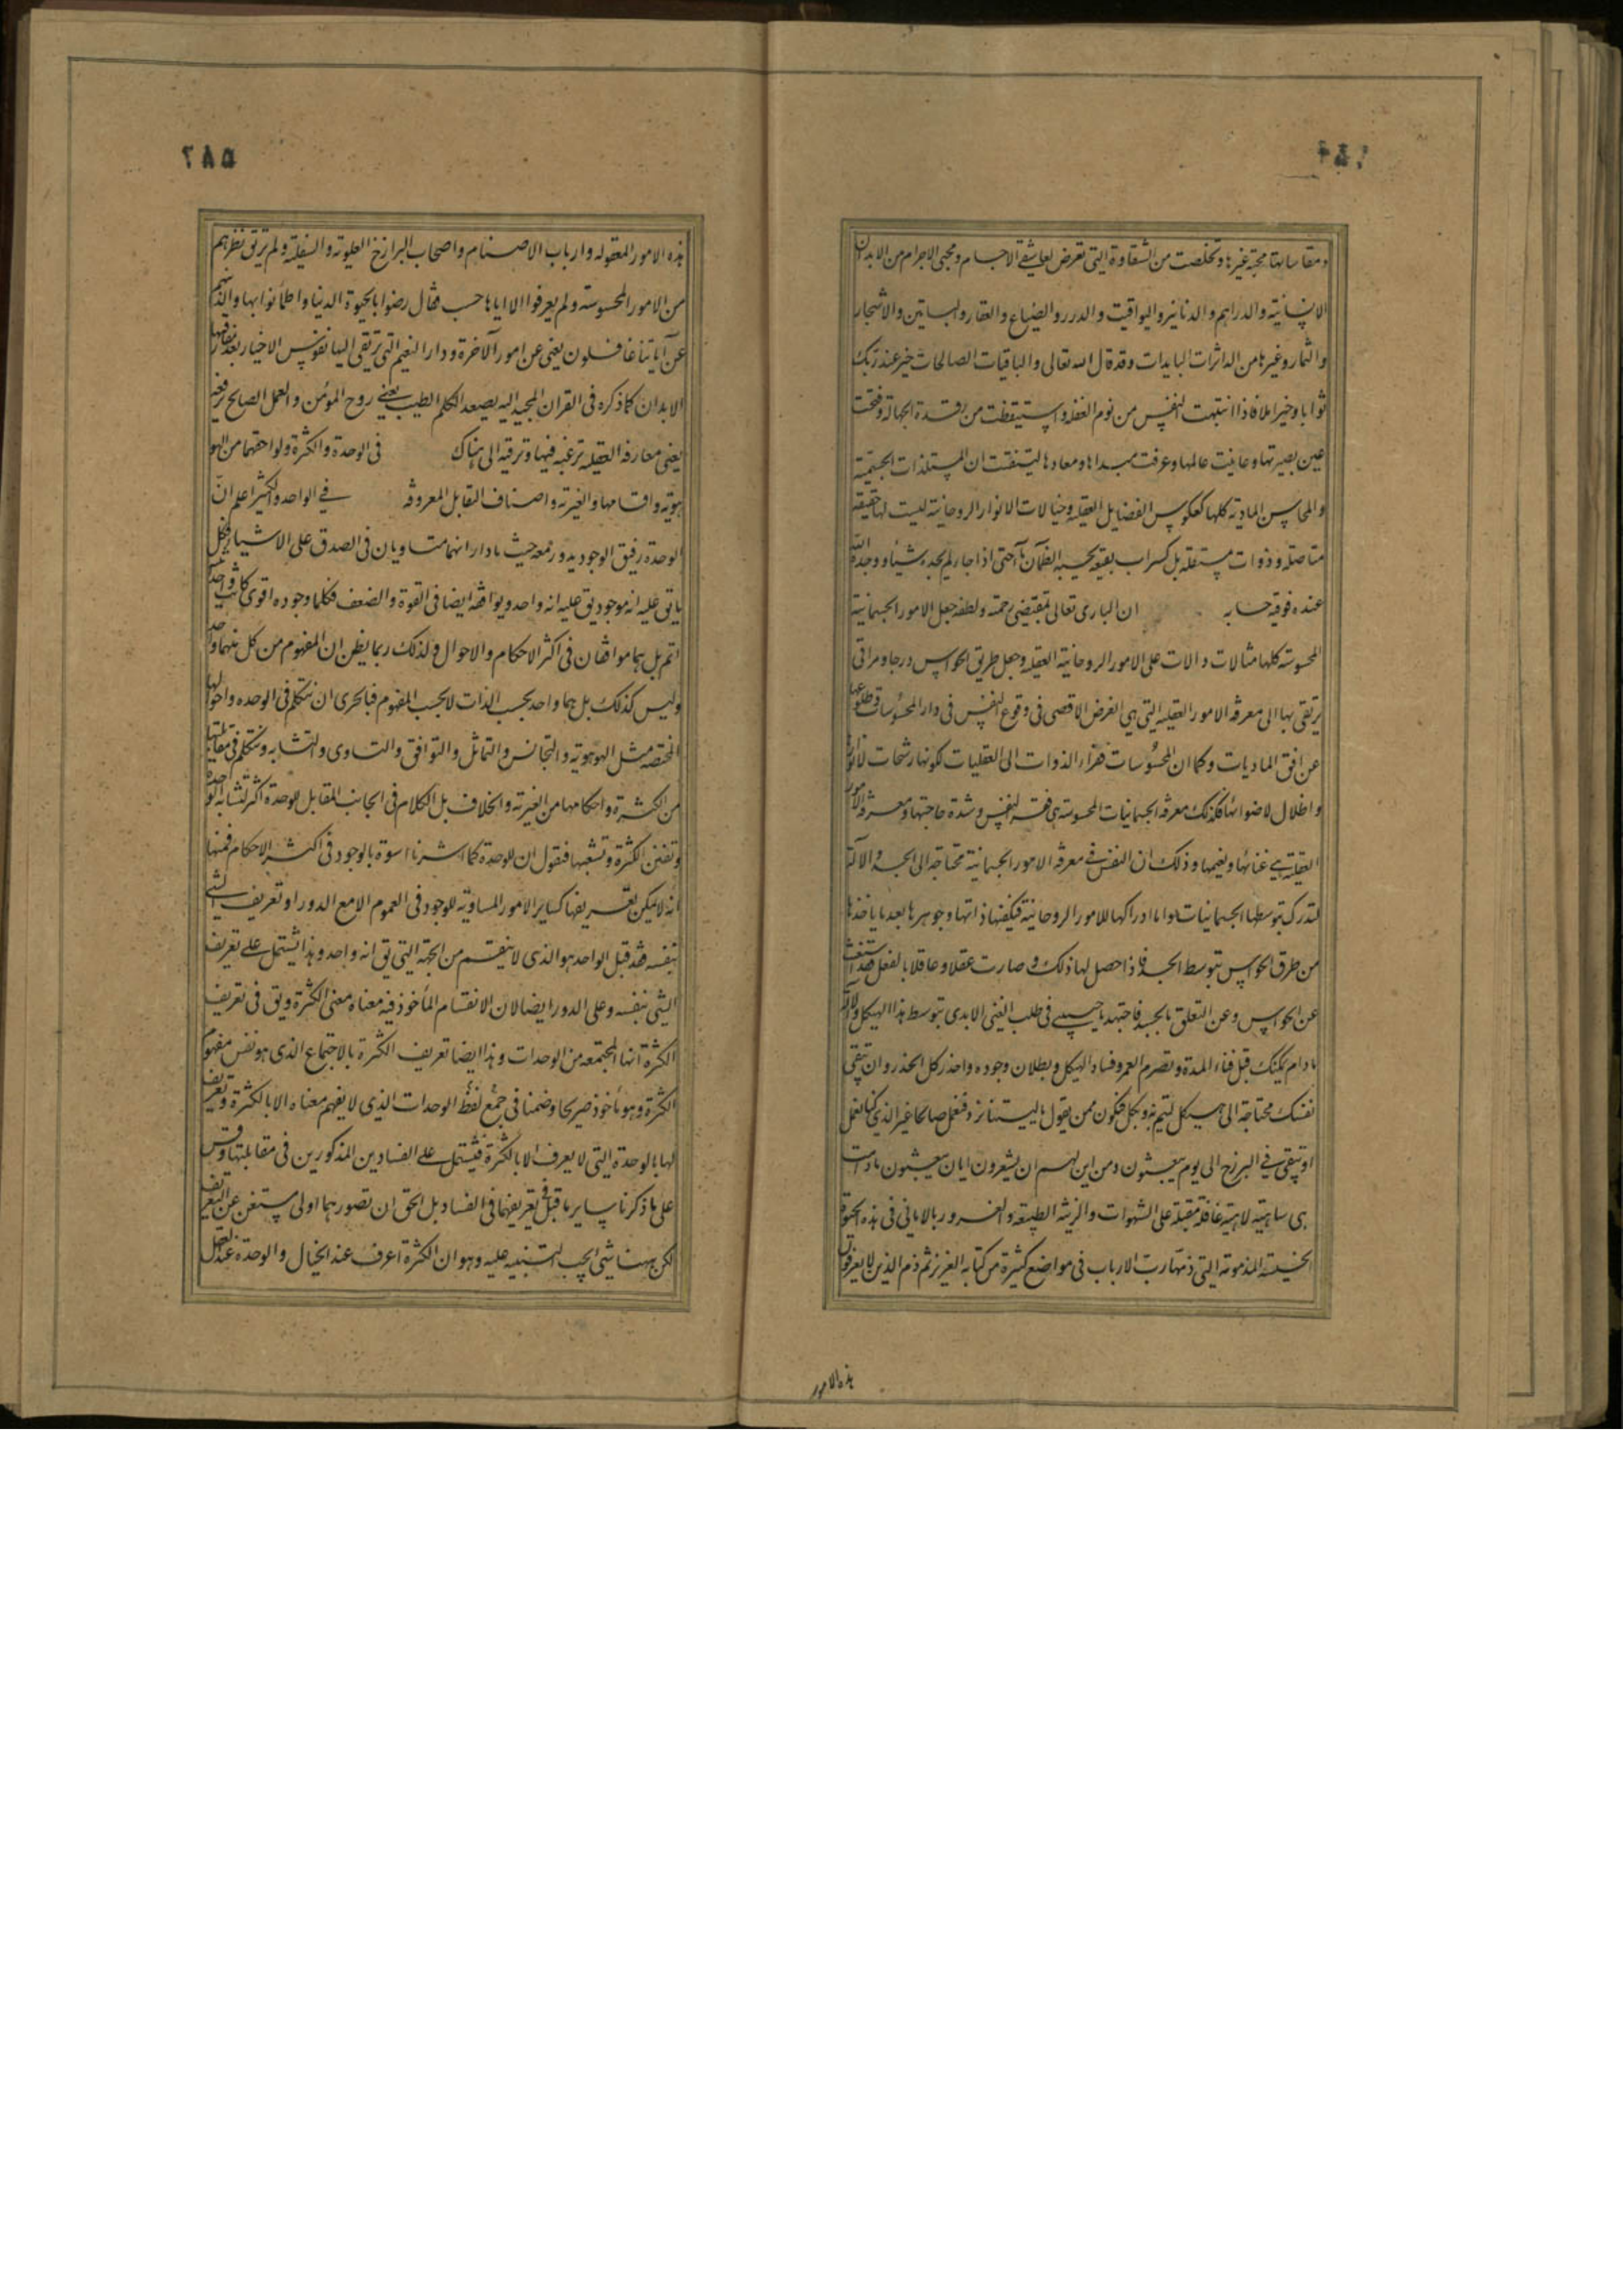 ومقاساتها محبة غيرها وتخلصت من الشقاوة التى تعرض لعاشقى الاجسام ومحبى الاجرام من الابدان
الانسانية والدراهم والدنانير واليواقيت والدرر والضياع والعقار والبساتين والاشجار
والثمار وغيرها من الداثرات البايدات وقد قال الله تعالى والباقيات الصالحات خير عند ربك
ثوابا وخير املا فاذا انتبهت النفس من نوم الغفلة واستيقظت من رقدة الجهالة وفتحت
عين بصيرتها وعاينت عالمها وعرفت مبداها ومعادها لتيقنت ان المستلذات الجسمية
والمحاسن المادية كلها كعكوس الفضايل العقلية وخيالات الانوار الروحانية ليست لها حقيقة
متاصلة وذوات مستقلة بل كسراب بقيعة يحسبه الظمآن ماء حتى اذا جاءه لم يجده شيئا ووجد الله
عنده فوفيه حسابه ان البارى تعالى بمقتضى رحمته ولطفه جعل الامور الجسمانية
المحسوسة كلها مثالات دالات على الامور الروحانية العقلية وجعل طريق الحواس درجا ومراقى
يرتقى بها الى معرفة الامور العقلية التى هى الغرض الاقصى فى وقوع النفس فى دار المحسوسات وطلوعها
عن افق الماديات وكما ان المحسوسات فقراء الذوات الى العقليات لكونها رشحات لانوارها
واظلال لاضوائها فكذلك معرفة الجسمانيات المحسوسة هى فقر النفس وشدة حاجتها ومعرفة الامور
العقلية هى غنائها ونعيمها وذلك ان النفس فى معرفة الامور الجسمانية محتاجة الى الجسد والآلة
لتدرك بتوسطها الجسمانيات واما ادراكها للامور الروحانية فيكفيها ذاتها وجوهرها بعد ما ياخذها
من طرق الحواس بتوسط الجسد فاذا حصل لها ذلك وصارت عقلا وعاقلا بالفعل فقد استغنت
عن الحواس وعن التعلق بالجسد فاجتهد يا حبيبى فى طلب الغنى الابدى بتوسط هذا الهيكل وآلاته
مادام يمكنك قبل فناء المدة وتصرم العمر وفساد الهيكل وبطلان وجوده واحذر كل الحذر وان تبقى
نفسك محتاجة الى هيكل لتيم به وبكل فتكون ممن يقول يا ليتنا نرد فنعمل صالحا غير الذى كنا نعمل
او تبقى فى البرزخ الى يوم يبعثون ومن اين لهم ان يشعرون ايان يبعثون ما دامت
هى ساهية لاهية غافلة مقبلة على الشهوات والزينة الطبيعة والغرور بالامانى فى هذه الحيوة
الخسيسة المذمومة التى ذمها رب الارباب فى مواضع كثيرة من كتابه العزيز ثم ذم الذين لا يعرفون
هذه الامور
٥٨٧
هذه الامور المعقولة وارباب الاصنام واصحاب البرازخ العلوية والسفلية ولم يرتق نظرهم
من الامور المحسوسة ولم يعرفوا الا اياها حسب فقال رضوا بالحيوة الدنيا واطمأنوا بها والذين هم
عن آياتنا غافلون يعنى عن امور الآخرة ودار النعيم التى يرتقى اليها نفوس الاخيار بعد مفارقتها
الابدان كما ذكره فى القران المجيد اليه يصعد الكلم الطيب يعنى روح المؤمن والعمل الصالح يرفعه
يعنى معارفه العقلية ترغبه فيها وترقيه الى هناك فى الوحدة والكثرة ولواحقهما من الهو
هوية واقسامها والغيرية واصناف التقابل المعروفة فى الواحد والكثير اعلم ان
الوحدة رفيق الوجود يدور معه حيث مادار اذ هما متساويان فى الصدق على الاشياء فكل
ما يق عليه انه موجود يق عليه انه واحد ويوافقه ايضا فى القوة والضعف فكلما وجوده اقوى كانت وحدته
اتم بل هما موافقان فى اكثر الاحكام والاحوال ولذلك ربما يظن ان المفهوم من كل منهما واحد
وليس كذلك بل هما واحد بحسب الذات لا بحسب المفهوم فبالحرى ان نتكلم فى الوحدة واحوالها
المختصة مثل الهوهوية والتجانس والتماثل والتوافق والتساوى والتشابه ونتكلم فى مقابلتها
من الكثرة واحكامها من الغيرية والخلاف بل الكلام فى الجانب المقابل للوحدة اكثر لتشابه الوحدة
وتفنن الكثرة وتشعبها فنقول ان للوحدة كما اشرنا اسوة بالوجود فى اكثر الاحكام فمنها
انه لا يمكن تعريفها كساير الامور المساوية للوجود فى العموم الا مع الدور او تعريف الشى
بنفسه فقد قيل الواحد هو الذى لا ينقسم من الجهة التى يق انه واحد وهذا يشتمل على تعريف
الشى بنفسه وعلى الدور ايضا لان الانقسام المأخوذ فيه معناه معنى الكثرة ويق فى تعريف
الكثرة انها المجتمعة من الوحدات وهذا ايضا تعريف الكثرة بالاجتماع الذى هو نفس مفهوم
الكثرة وهو مأخوذ صريحا وضمنا فى جمع لفظ الوحدات الذى لا يفهم معناه الا بالكثرة وتعريف
لها بالوحدة التى لا يعرف الا بالكثرة فيشتمل على الفسادين المذكورين فى مقابلتها وقس
على ما ذكرنا ساير ما قيل فى تعريفها فى الفساد بل الحق ان تصورهما اولى مستغن عن التعريف
لكن ههنا شى يجب التنبيه عليه وهو ان الكثرة اعرف عند الخيال والوحدة عند العقل